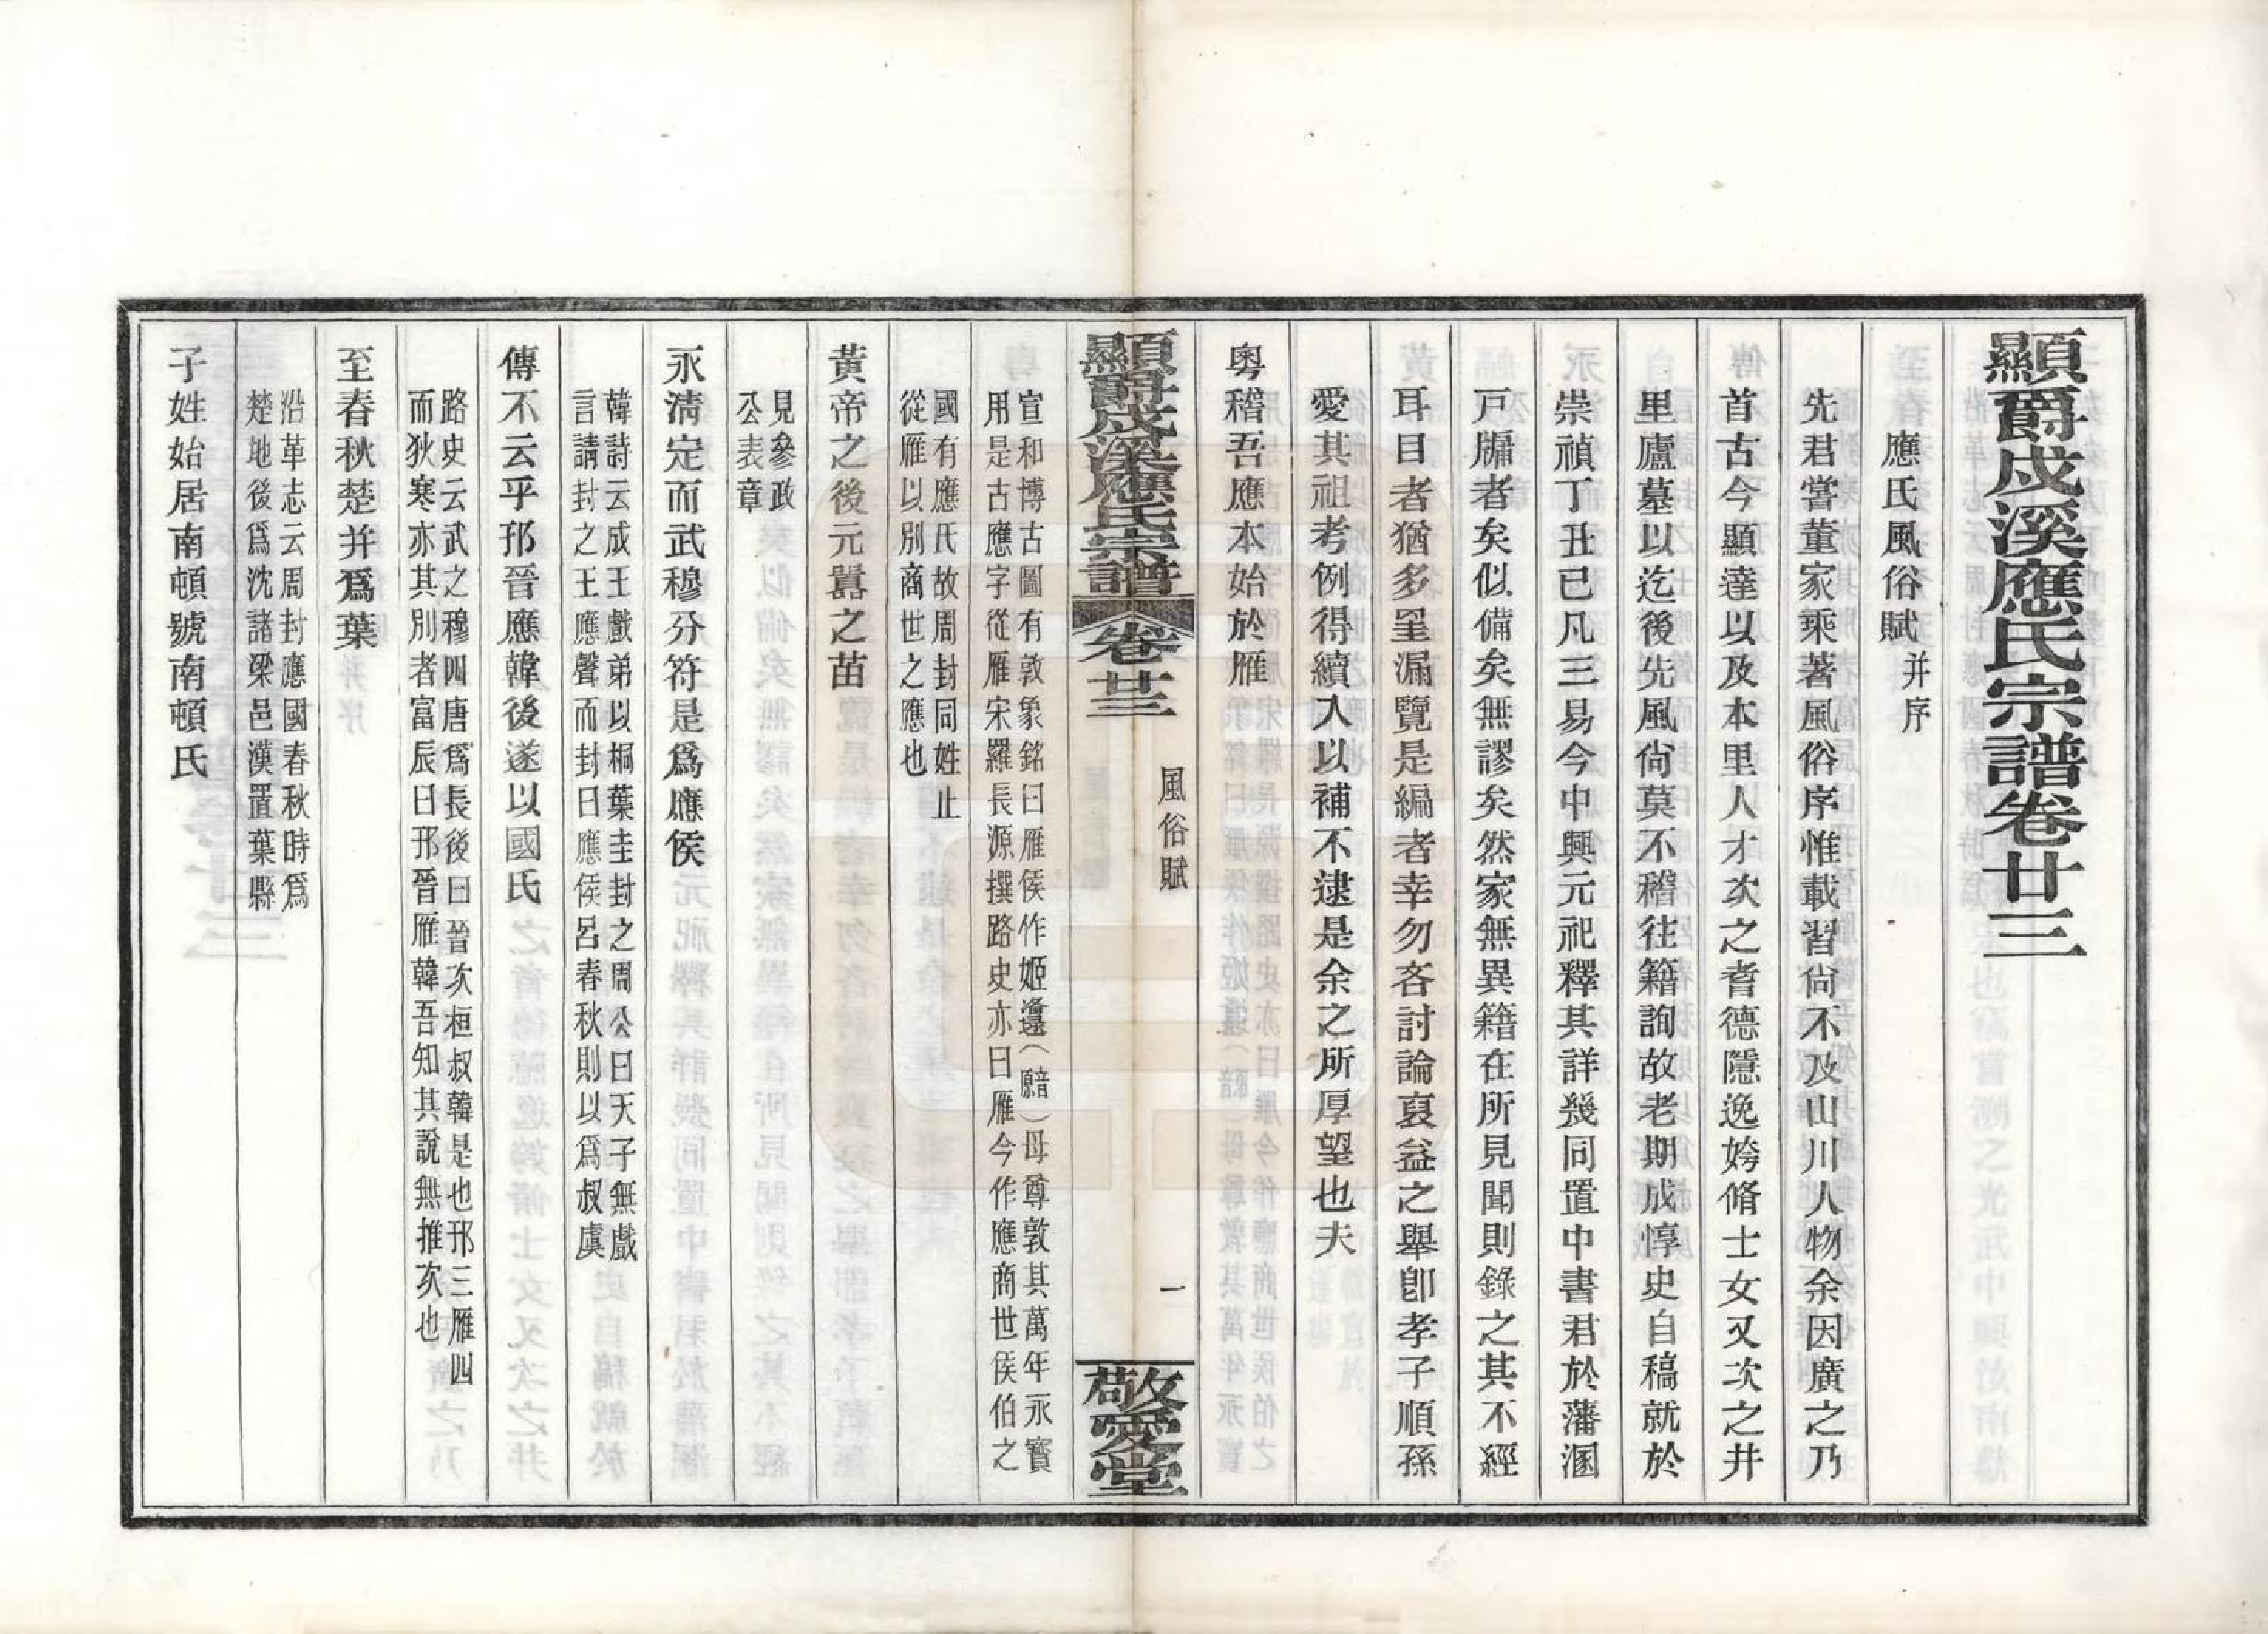 顯爵戍溪應氏宗譜卷廿三
應氏風俗賦并序
先君嘗董家乘著風俗序惟載習尙不及山川人物余因廣之乃
首古今顯達以及本里人才次之耆德隱逸姱脩士女又次之井
里廬墓以迄後先風尙莫不稽往籍詢故老期成惇史自稿就於
崇禎丁丑已凡三易今中興元祀釋其詳幾同置中書君於藩溷
戸牖者矣似備矣無謬矣然家無異籍在所見聞則錄之其不經
耳目者猶多罣漏覽是編者幸勿吝討論裒益之舉卽孝子順孫
愛其祖考例得續入以補不逮是余之所厚望也夫
粤稽吾應本始於雁
風俗賦
一
顯爵戍溪應氏宗譜 卷廿三
敬愛堂
宣和博古圖有敦象銘曰雁侯作姬邍（䵻）母尊敦其萬年永寳
用是古應字從雁宋羅長源撰路史亦曰雁今作應商世侯伯之
國有應氏故周封同姓止
從雁以別商世之應也
黃帝之後元囂之苗
見參政
公表章
永淸定而武穆分符是爲應侯
韓詩云成王戲弟以桐葉圭封之周公曰天子無戲
言請封之王應聲而封曰應侯呂春秋則以爲叔虞
傳不云乎邘晉應韓後遂以國氏
路史云武之穆四唐爲長後曰晉次桓叔韓是也邘三雁四
而狄寒亦其別者富辰曰邘晉雁韓吾知其說無推次也
至春秋楚并爲葉
沿革志云周封應國春秋時爲
楚地後爲沈諸梁邑漢置葉縣
子姓始居南頓號南頓氏